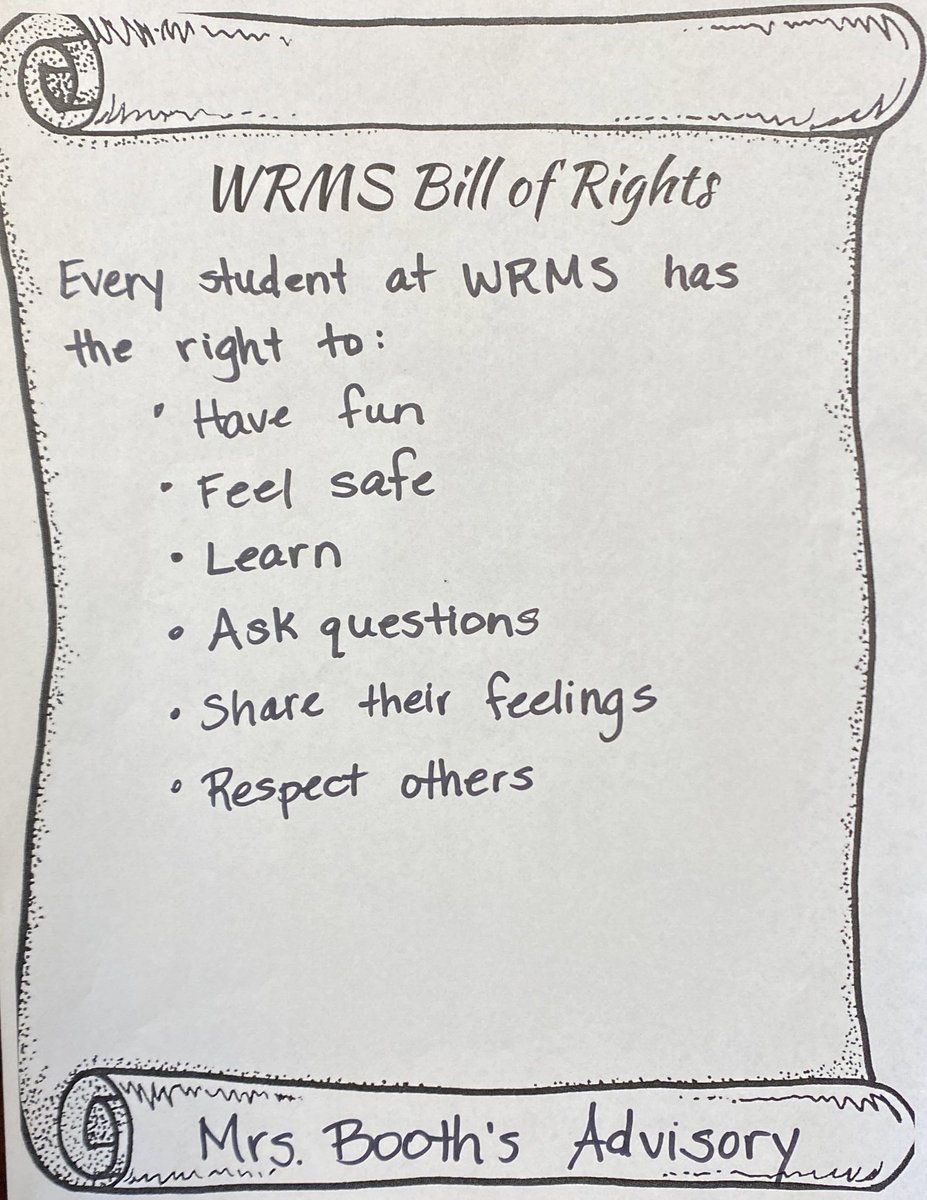 WRMS Bill of Rights
Every student at WRMS has
the right to:
• Have fun
• Feel safe
• Learn
• Ask questions
• Share their feelings
• Respect others
Mrs. Booth's Advisory